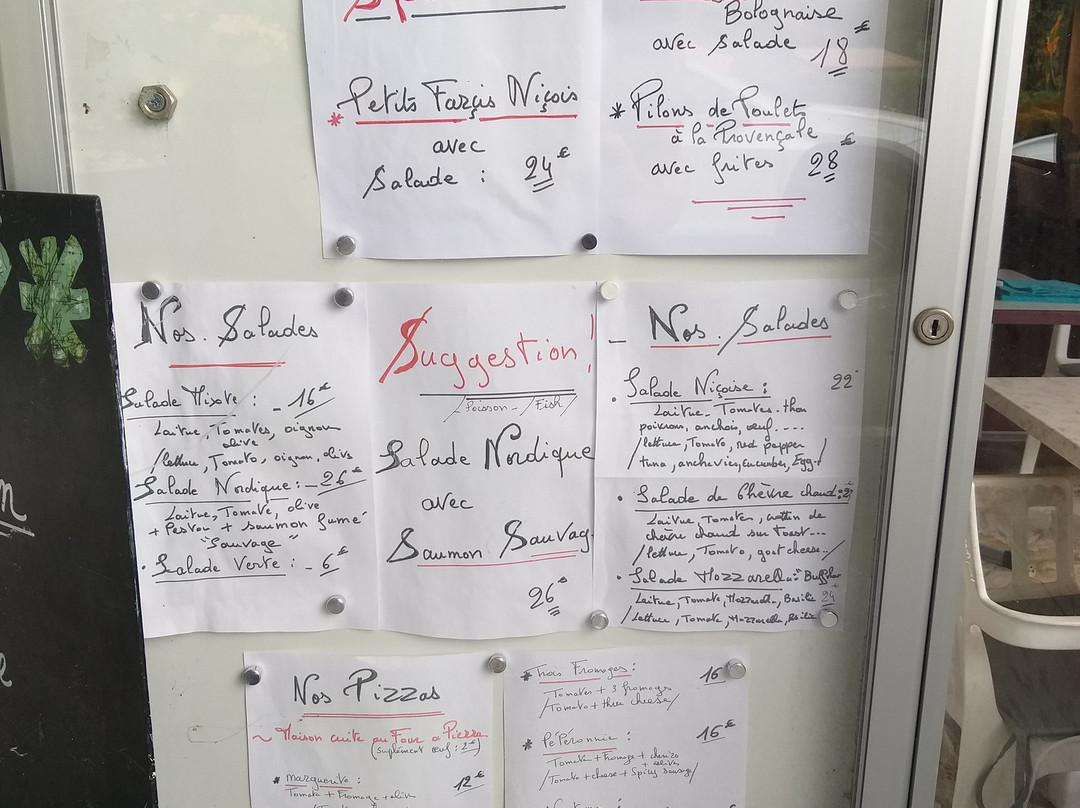 Petits Farçis Niçois
avec
Salade : 24€
Bolognaise
avec Salade 18€
* Pilons de Poulet
à la Provençale
avec frites 28€
Nos. Salades
Salade Mixte : - 16€
Laitue, Tomates, oignon
olive
/lettuce, Tomato, oignon, olivs
Salade Nordique : - 26€
Laitue, Tomate, olive
+ Pestou + saumon fumé
"Sauvage"
· Salade Verte : - 6€
Suggestion!
/Poisson - / Fish/
Salade Nordique
avec
Saumon Sauvag
26€
- Nos. Salades
· Salade Niçoise : 22
Laitue - Tomates - thon
poivron, anchois, œuf ....
/lettuce, Tomato, red pepper
/tuna, anchovies, Cucumber, Egg/
· Salade de Chèvre chaud :
Laitue, Tomates, crottin de
chèvre chaud sur Toast...
/lettuce, Tomato, goat cheese../
· Salade Mozzarella : "Buffala"
Laitue, Tomate, Mozzarella, Basilic 24
/lettuce, Tomate, Mozzarella, Basilic
Nos Pizzas
~ Maison cuite au Four a Pizza
(suplément œuf : 2€)
* Marguerite : 12€
Tomate + Fromage + olive
* Trois Fromages : 16€
Tomates + 3 fromages
/Tomato + three cheese/
* Pepéronnie : 16€
Tomate + Fromage + chorizo
+ olive
/Tomato + cheese + Spicy sausage/